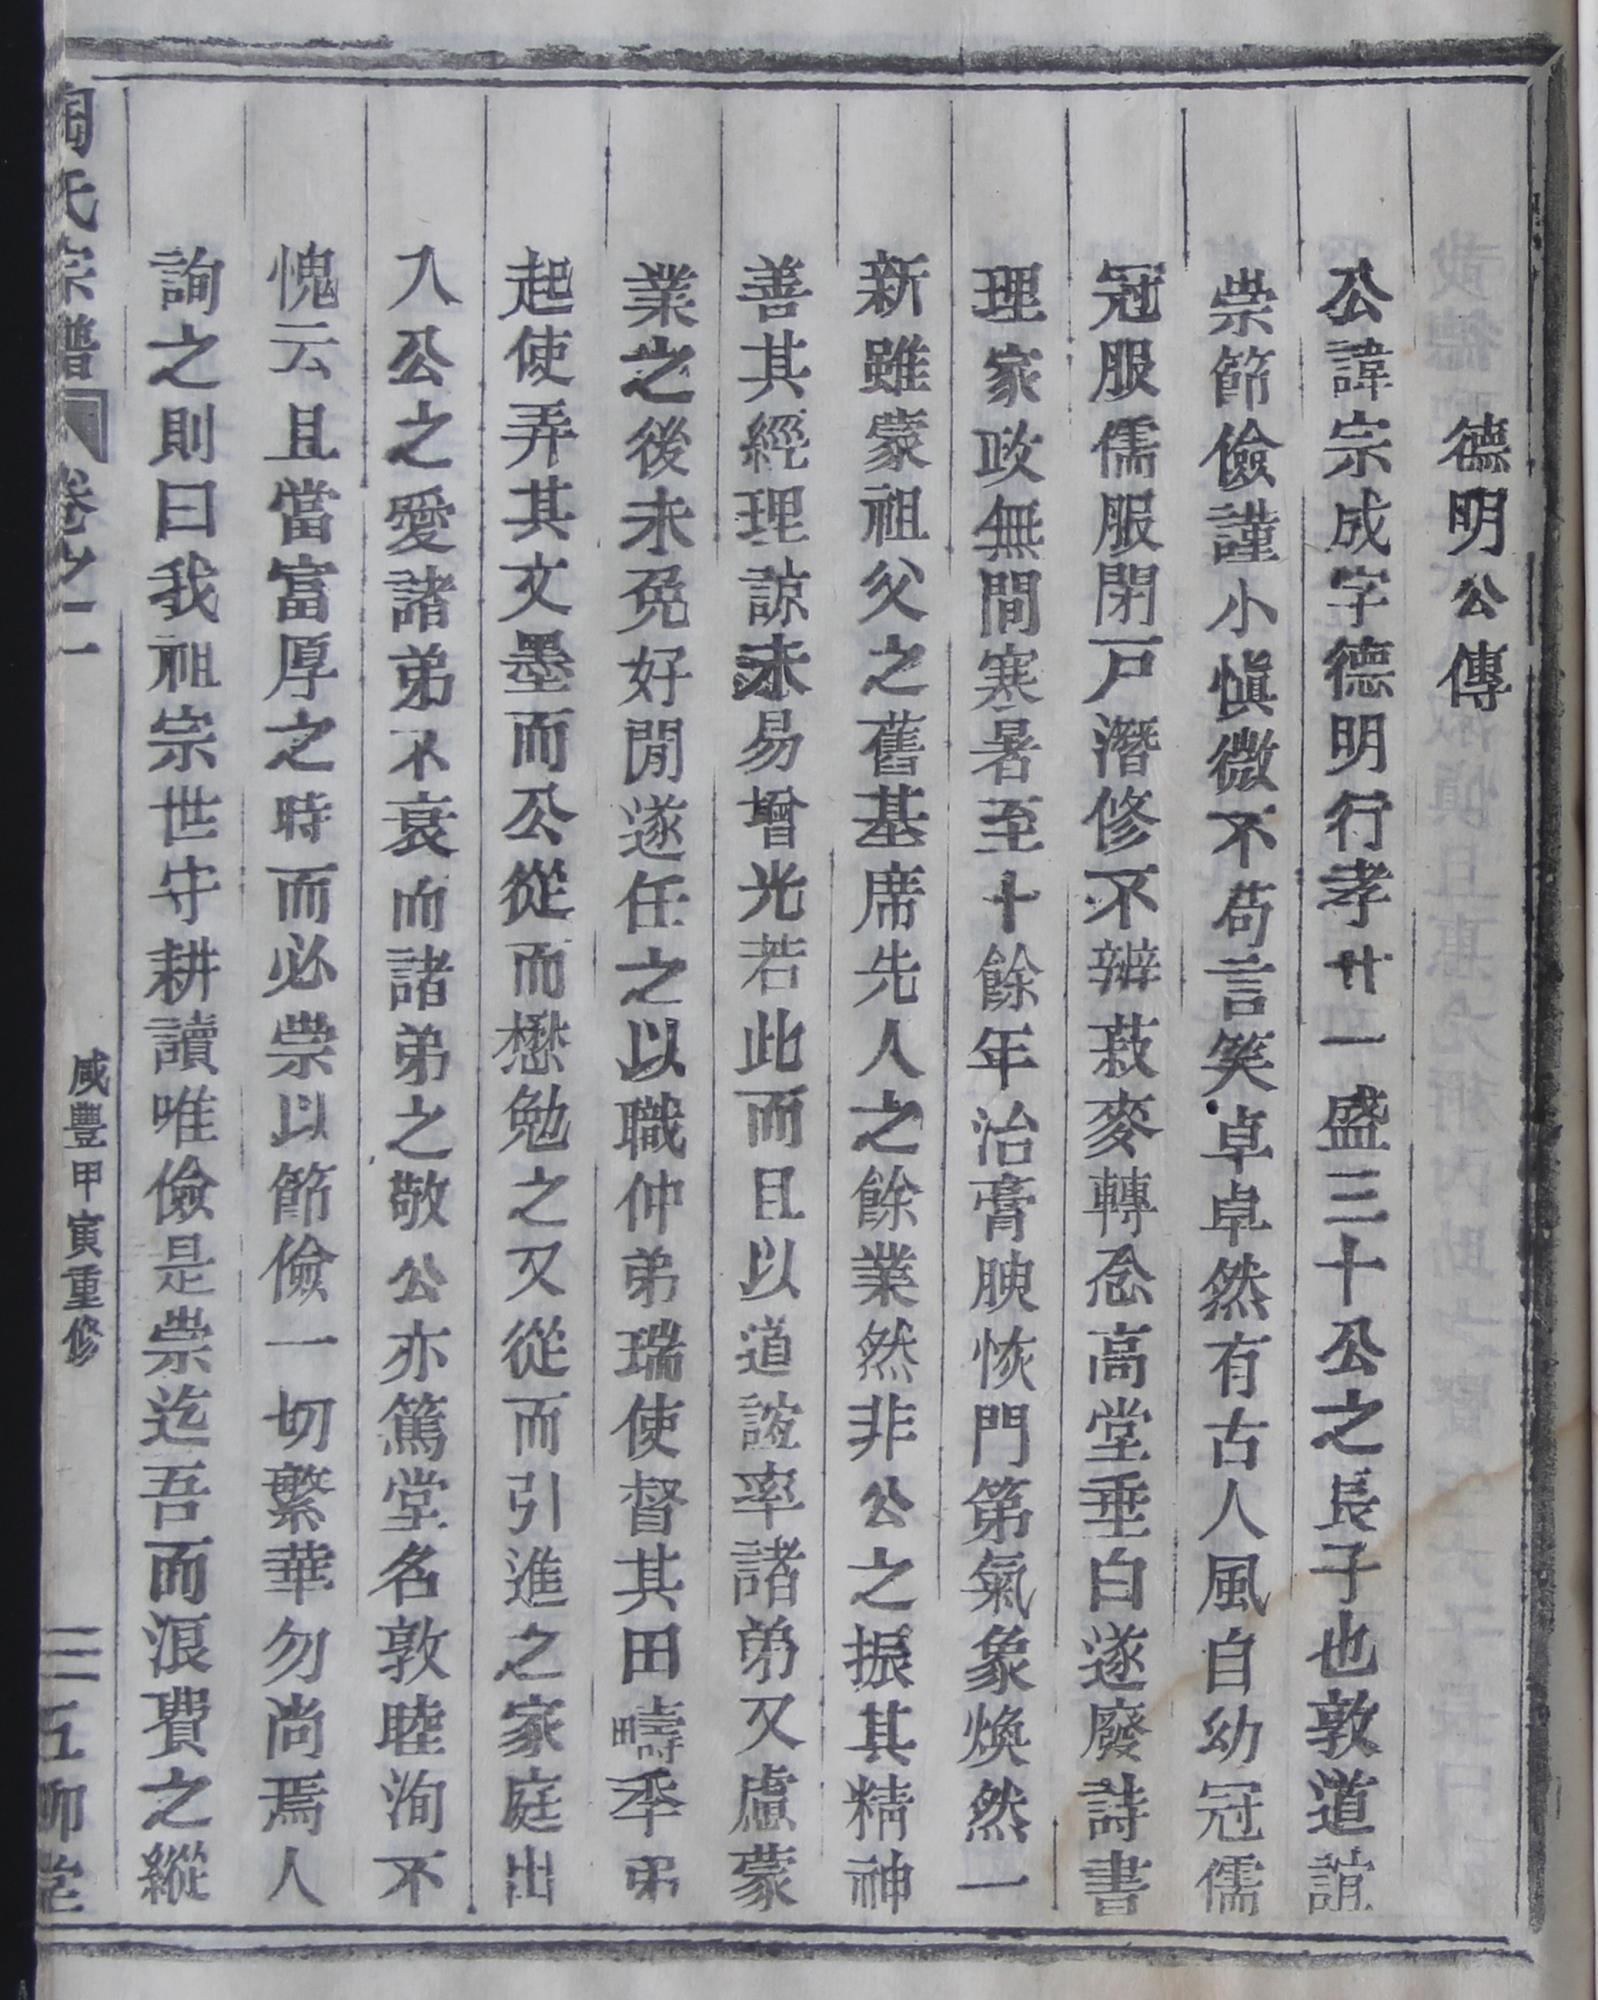 德明公傳
公諱宗成字德明行孝廿一盛三十公之長子也敦道誼
崇節儉謹小愼微不苟言笑卓卓然有古人風自幼冠儒
冠服儒服閉戸潛修不辨菽麥轉念高堂垂白遂廢詩書
理家政無間寒暑至十餘年治膏腴恢門第氣象煥然一
新雖蒙祖父之舊基席先人之餘業然非公之振其精神
善其經理諒未易增光若此而且以道誼率諸弟又慮蒙
業之後未免好閒遂任之以職仲弟瑞使督其田疇季弟
起使弄其文墨而公從而懋勉之又從而引進之家庭出
入公之愛諸弟不衰而諸弟之敬公亦篤堂名敦睦洵不
愧云且當富厚之時而必崇以節儉一切繁華勿尚焉人
詢之則曰我祖宗世守耕讀唯儉是崇迄吾而浪費之縱
陶氏宗譜 卷之二 咸豐甲寅重修 三 五柳堂